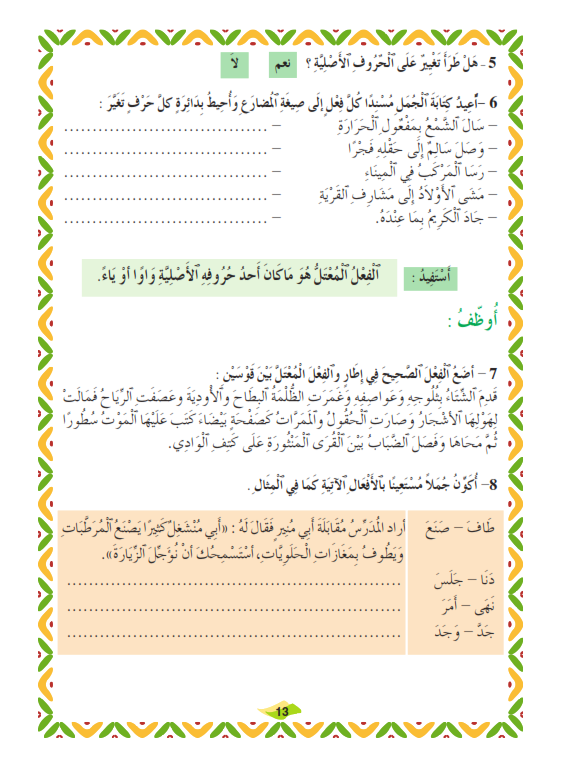 5 - هَلْ طَرَأَ تَغْيِيرٌ عَلَى ٱلْحُرُوفِ ٱلْأَصْلِيَّةِ ؟ نعم لاَ
6 –أُعِيدُ كِتَابَةَ ٱلْجُمَلِ مُسْنِدًا كُلَّ فِعْلٍ إلَى صِيغَةِ ٱلْمُضَارَعِ وَأُحِيطُ بِدَائِرَةٍ كلَّ حَرْفٍ تَغَيَّرَ :
– سَالَ الشَّمْعُ بِمَفْعُولِ ٱلْحَرَارَةِ – ....................................
– وَصَلَ سَالِمٌ إِلَى حَقْلِهِ فَجْرًا – ....................................
– رَسَا ٱلْمَرْكَبُ فِي ٱلْمِينَاءِ – ....................................
– مَشَى ٱلْأَوْلاَدُ إلَى مَشَارِفِ ٱلْقَرْيَةِ – ....................................
– جَادَ ٱلْكَرِيمُ بِمَا عِنْدَهُ. – ....................................
أَسْتَفِيدُ : ٱلْفِعْلُ ٱلْمُعْتَلُّ هُوَ مَاكَانَ أَحدُ حُرُوفِهِ ٱلْأَصْلِيَّةِ وَاوًا أوْ يَاءً.
أُوظّفُ :
7 – أضَعُ ٱلْفِعْلَ ٱلصَّحِيحَ فِي إطَارٍ وٱلفِعْلَ ٱلْمُعْتَلَّ بَيْنَ قَوْسَيْنِ :
قَدِمَ ٱلشِّتَاءُ بِثُلُوجِهِ وَعَوَاصِفِهِ وَغَمَرَتِ الظُّلْمَةُ ٱلْبِطَاحَ وَٱلْأَوْدِيَةَ وعَصَفَت ٱلرِّيَاحُ فَمَالَتْ
لِهَوْلِهَا ٱلأَشْجَارُ وَصَارَتِ ٱلْحُقُولُ وَٱلْمَمَرَّاتُ كَصَفْحَةٍ بَيْضَاءَ كَتَبَ عَلَيْهَا ٱلْمَوْتُ سُطُورًا
ثُمَّ مَحَاهَا وَفَصَلَ الضَّبَابُ بَيْنَ ٱلْقُرَى ٱلْمَنْثُورَةِ عَلَى كَتِفِ ٱلْوَادِي.
8– أُكَوِّنُ جُمَلاً مُسْتَعِينًا بٱلأَفْعَالِ ٱلآتِيَةِ كَمَا فِي ٱلْمِثَالِ .
طَافَ – صَنَعَ أراد المُدَرِّسُ مُقَابَلَةَ أَبِي مُنِيرٍ فَقَالَ لَهُ : «أَبِي مُنْشَغِلٌ كَثِيرًا يَصْنَعُ ٱلْمُرَطَّبَاتِ
وَيَطُوفُ بِمَغَازَاتِ ٱلْحَلَوِيَّاتِ، أسْتَسْمِحُكَ أنْ نُؤَجِّلَ ٱلزِّيَارَةَ».
دَنَا – جَلَسَ ............................................................
نَهَى – أَمَرَ ............................................................
جَدَّ – وَجَدَ ............................................................
13